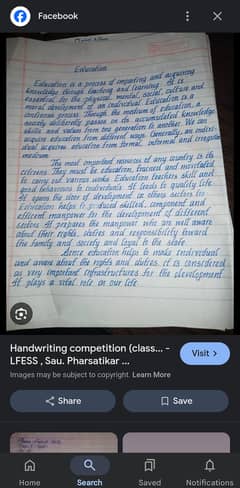 Facebook
Education
Education is a process of imparting and acquiring
knowledge through teaching and learning. It is
essential for the physical, mental, social, cultural and
moral development of an individual. Education is a
continous process. Through the medium of education, a
society deliberately passes on its accumulated knowledge
skills and values from one generation to another. We can
acquire education from different ways. Generally, an indivi-
dual acquires education from formal, informal and irregular
medium.
The most important resources of any country is its
citizens. They must be education, trained and motivated
to carry out various works. Education teachers skill and
good behaviours to individuals. It leads to quality life.
It opens the door of development in others sectors too.
Education helps to produced skilled, component and
efficient manpower for the development of different
sectors. It prepares the manpower who are well aware
about their rights, duties and responsibility toward
the family and society and loyal to the state.
Since education helps to make individual
and aware about the rights and duties, it is considered
as very important infrastructures for the development.
It plays a vital role in our life.
Handwriting competition (class... -
LFESS , Sau. Pharsatikar ...
Visit >
Images may be subject to copyright. Learn More
Share
Save
Home
Search
Saved
Notifications